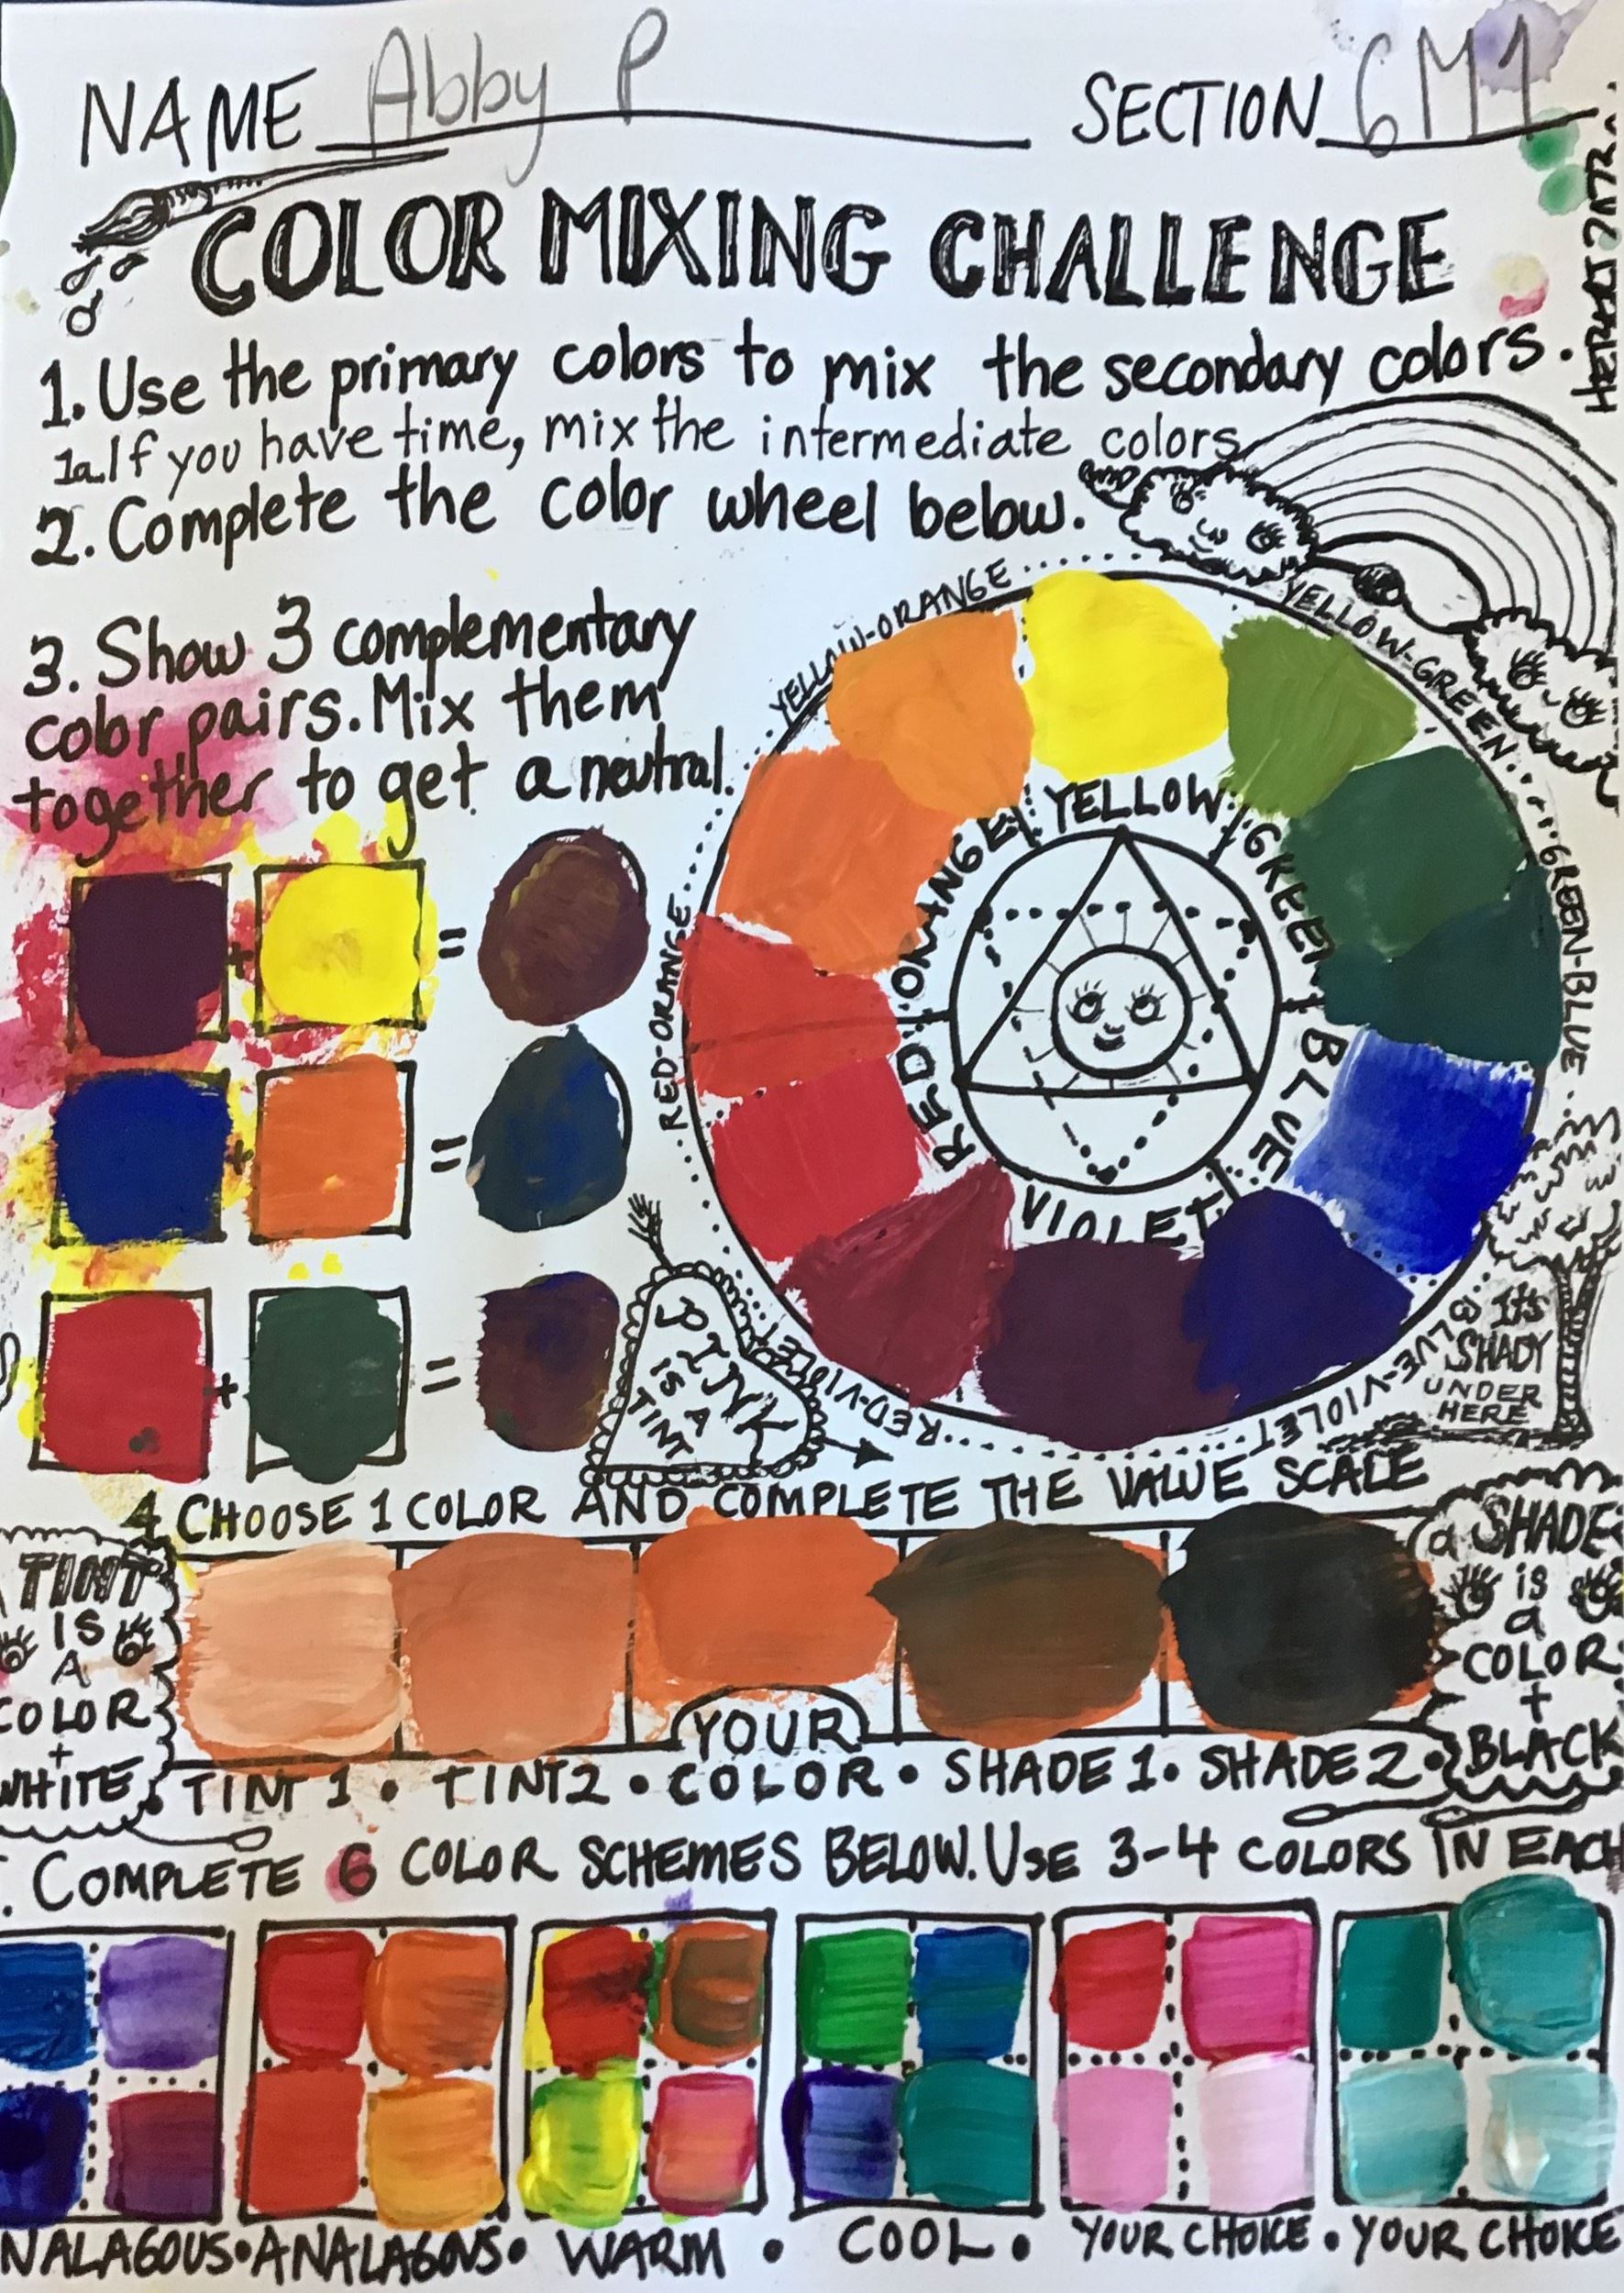 NAME Abby P SECTION 6M1
COLOR MIXING CHALLENGE
1. Use the primary colors to mix the secondary colors.
1a. If you have time, mix the intermediate colors.
2. Complete the color wheel below.
3. Show 3 complementary
color pairs. Mix them
together to get a neutral.
YELLOW-ORANGE
YELLOW-GREEN
GREEN-BLUE
BLUE-VIOLET
RED-VIOLET
RED-ORANGE
YELLOW
GREEN
BLUE
VIOLET
RED
ORANGE
+ =
+ =
+ =
PINK
IS A
TINT
It's
SHADY
UNDER
HERE
4 CHOOSE 1 COLOR AND COMPLETE THE VALUE SCALE
TINT
IS
A
COLOR
+
WHITE
a SHADE
is
a
COLOR
+
BLACK
YOUR
TINT 1 • TINT 2 • COLOR • SHADE 1 • SHADE 2 •
. COMPLETE 6 COLOR SCHEMES BELOW. USE 3-4 COLORS IN EACH
NALAGOUS • ANALAGOUS • WARM • COOL • YOUR CHOICE • YOUR CHOICE